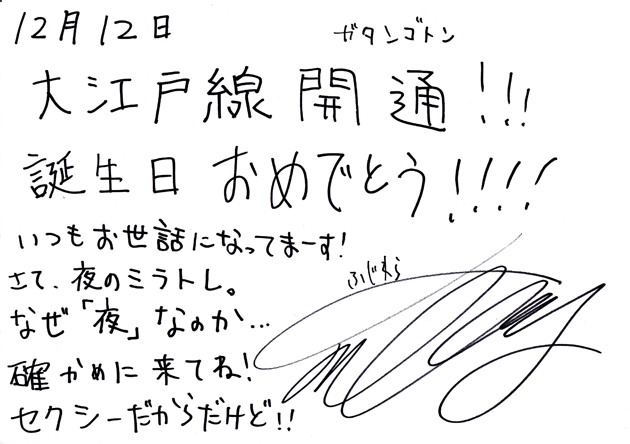 12月12日
ガタンゴトン
大江戸線開通!!!
誕生日おめでとう!!!!
いつもお世話になってまーす!
さて、夜のミラトレ。
なぜ「夜」なのか...
確かめに来てね!
セクシーだからだけど!!
ふじわら